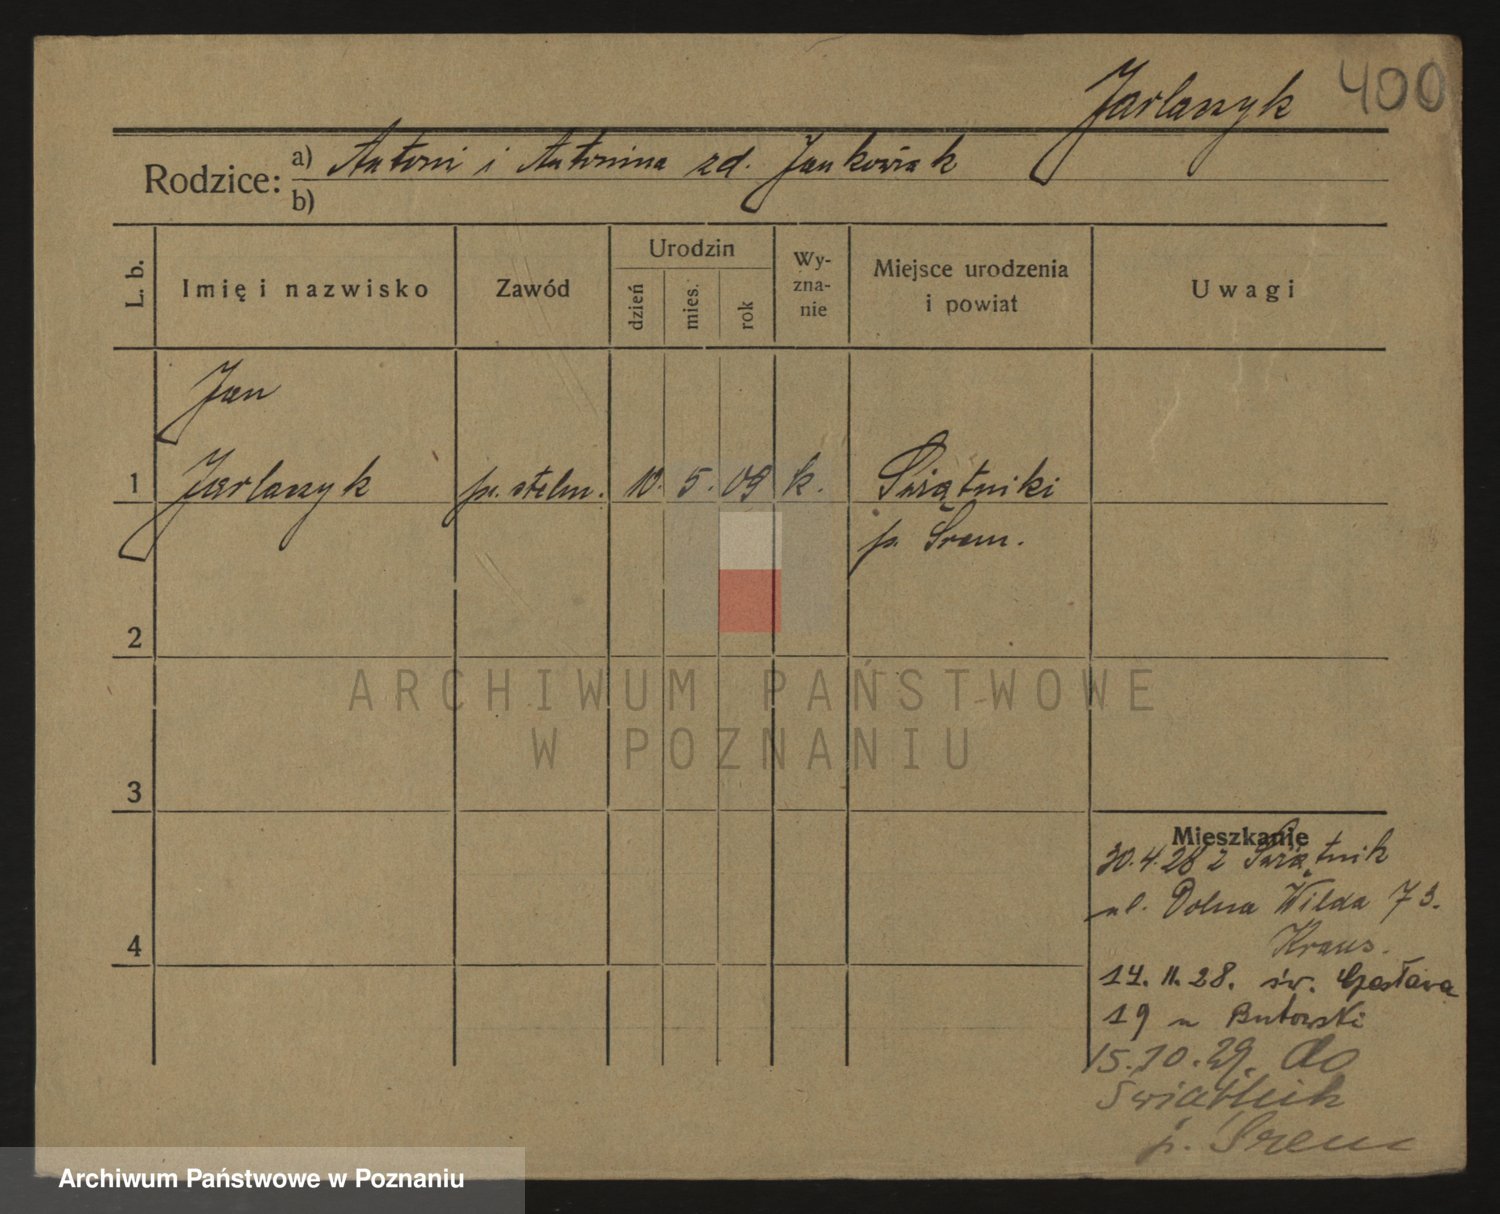 Jarlaszyk 400
Rodzice: a) Antoni i Antonina zd. Jankowiak
b)
L. b.
Imię i nazwisko
Zawód
Urodzin
dzień
mies.
rok
Wy-
zna-
nie
Miejsce urodzenia
i powiat
Uwagi
Jan
1 Jarlaszyk pr. stelm. 10. 5. 09 k. Świątniki
p. Śrem.
2
ARCHIWUM PAŃSTWOWE
W POZNANIU
3
Mieszkanie
30.4.28 z Świątnik
ul. Dolna Wilda 73.
Kraus.
4
14. 11. 28. św. Czesława
19 u Butowski
15.10.29. do
Świątnik
p. Śrem
Archiwum Państwowe w Poznaniu